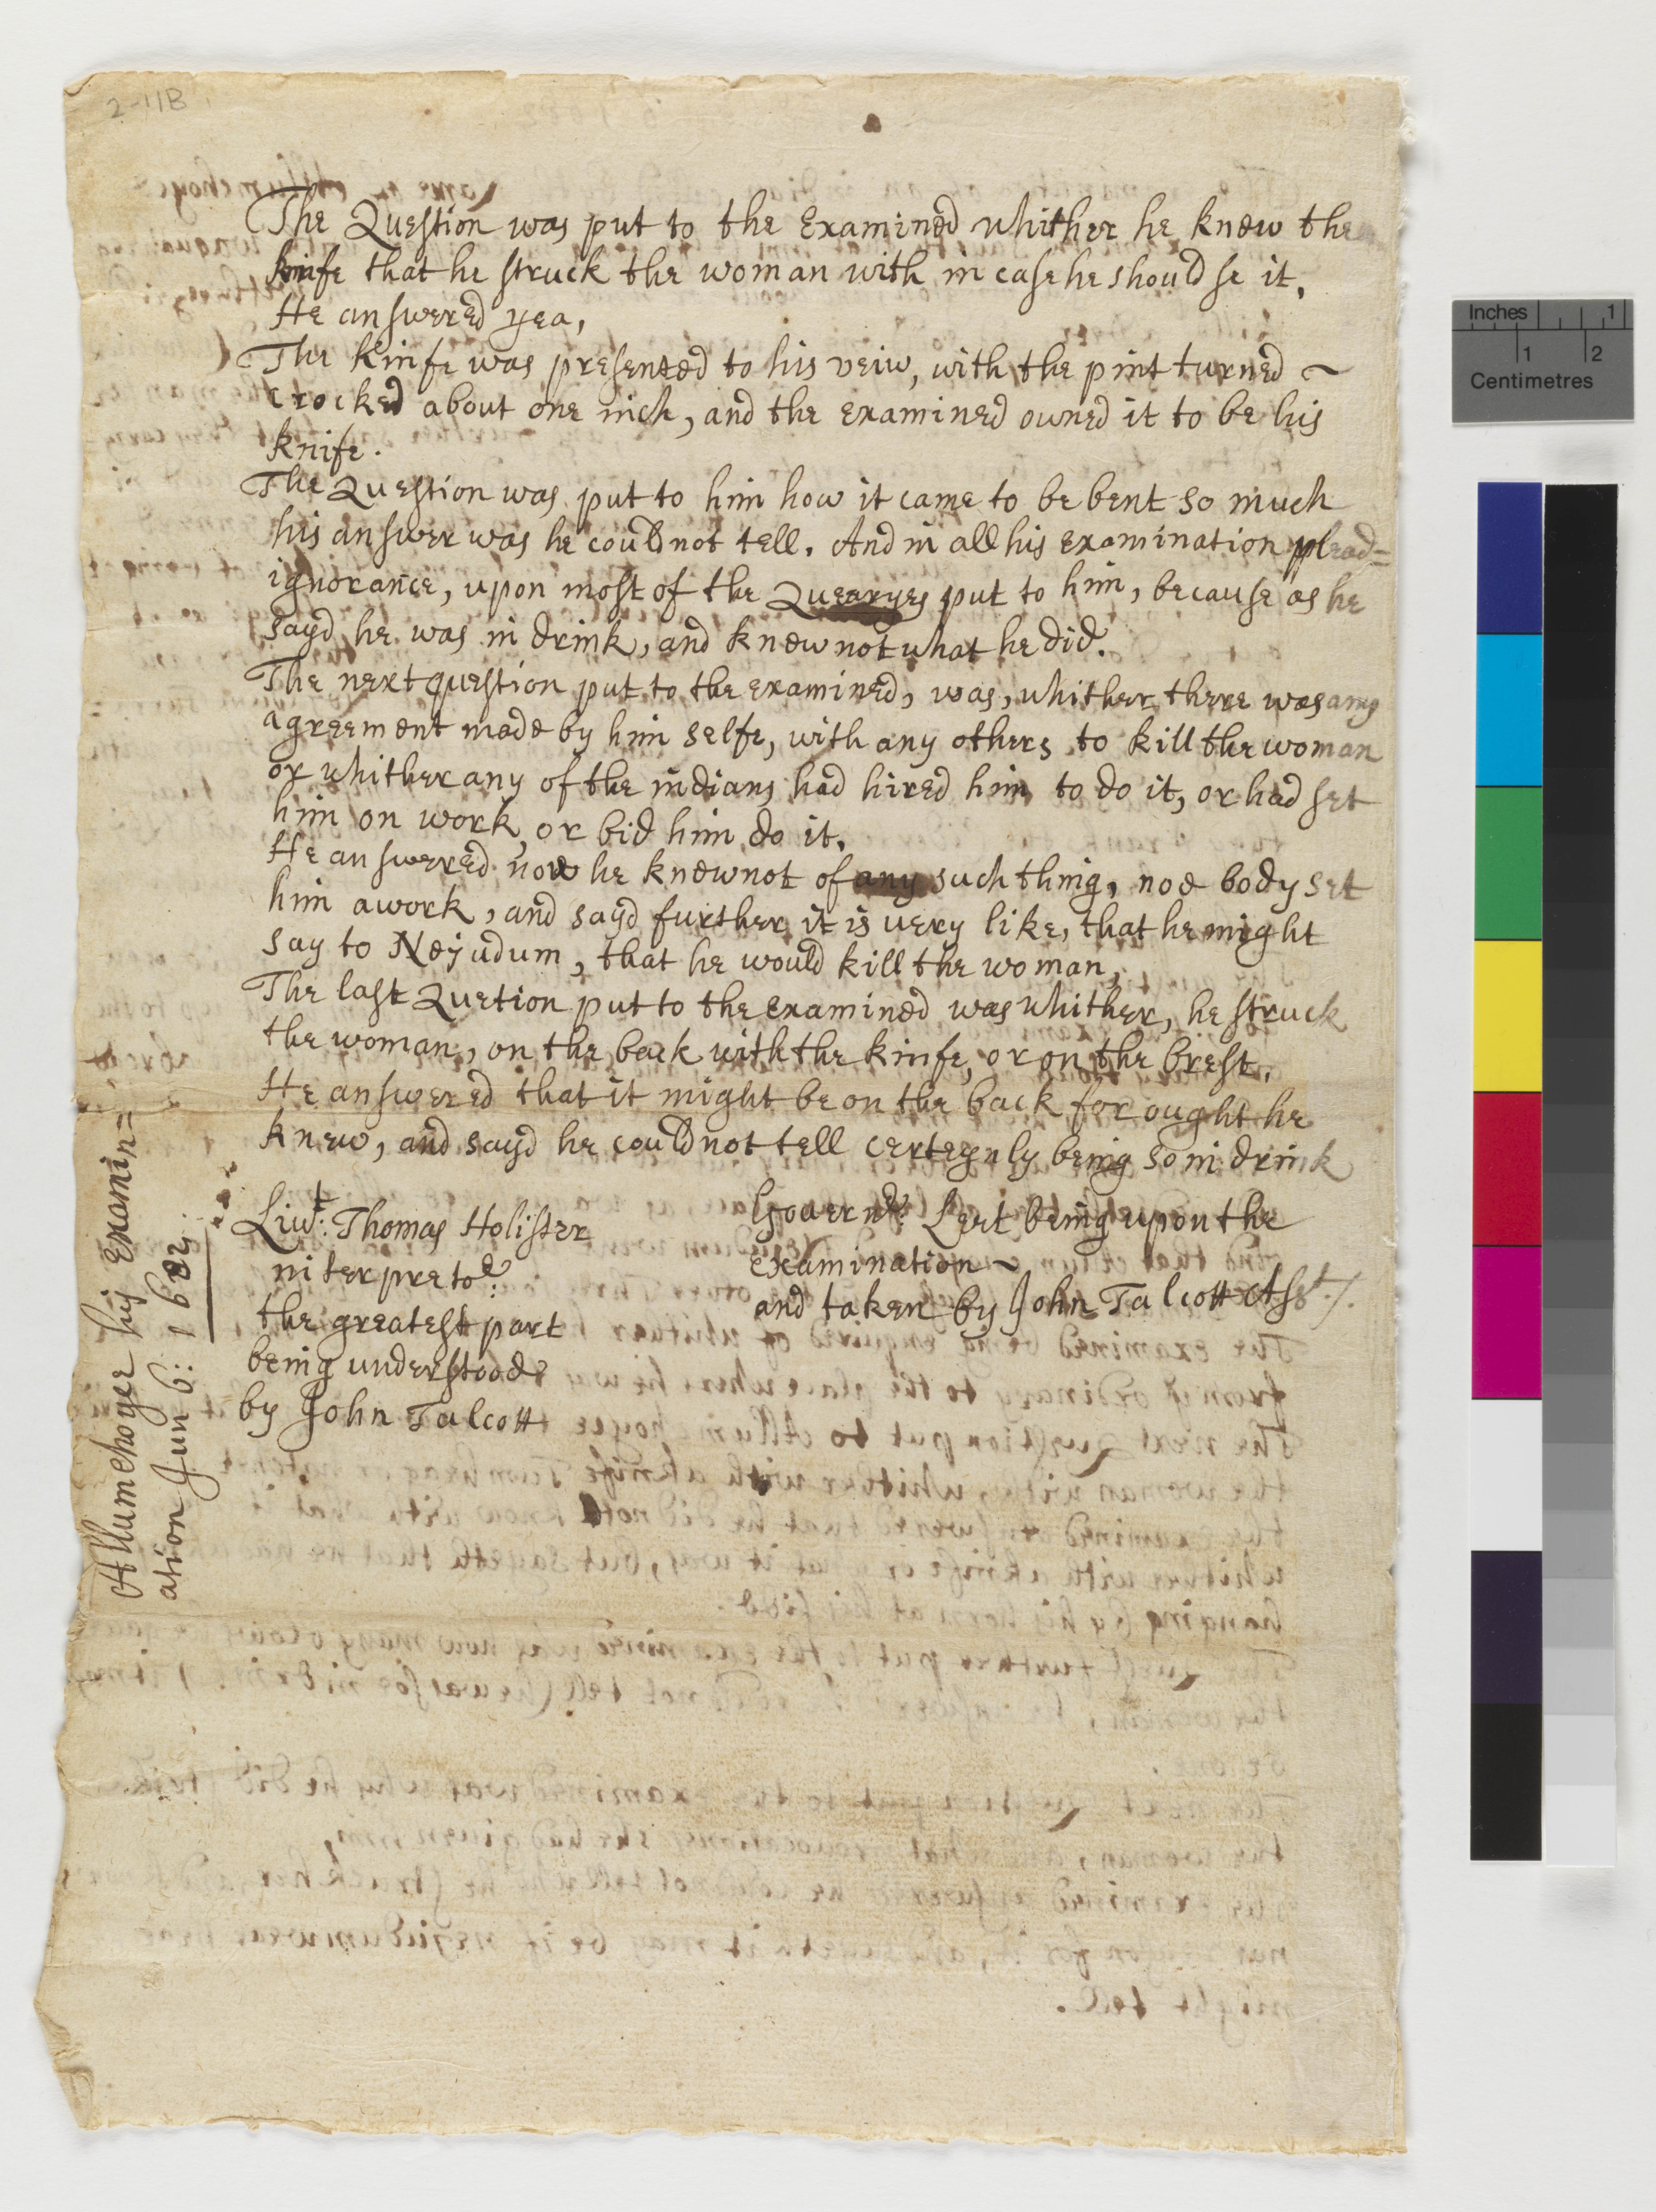 2-11B
The Question was put to the Examined whither he knew the
knife that he struck the woman with in case he should se it,
He answered yea,
The kinfe was presented to his veiw, with the pint turned ~
crocked about one inch, and the examined owned it to be his
knife.
The Question was put to him how it came to be bent so much
his answer was he could not tell. And in all his examination plead=
ignorance, upon most of the Quearyes put to him, because as he
sayd he was in drink, and knew not what he did.
The next question put to the examined, was, whither there was any
agreement made by him selfe, with any others to kill the woman
or whither any of the indians had hired him to do it, or had set
him on work, or bid him do it.
He answered noe he knew not of any such thing, noe body set
him awork, and sayd further it is very like, that he might
say to Nejudum, that he would kill the woman,
The last Quetion put to the examined was whither, he struck
the woman, on the back with the kinfe, or on the brest.
He answered that it might be on the back for ought he
knew, and sayd he could not tell certeynly being so in drink
Liut: Thomas Holister
interpretor:
the greatest part
being understood
by John Talcott
Governr: Leet being upon the
examination ~
and taken by John Talcott Asst./.
Allumchoyee his Examin=
ation Jun 6: 1682.